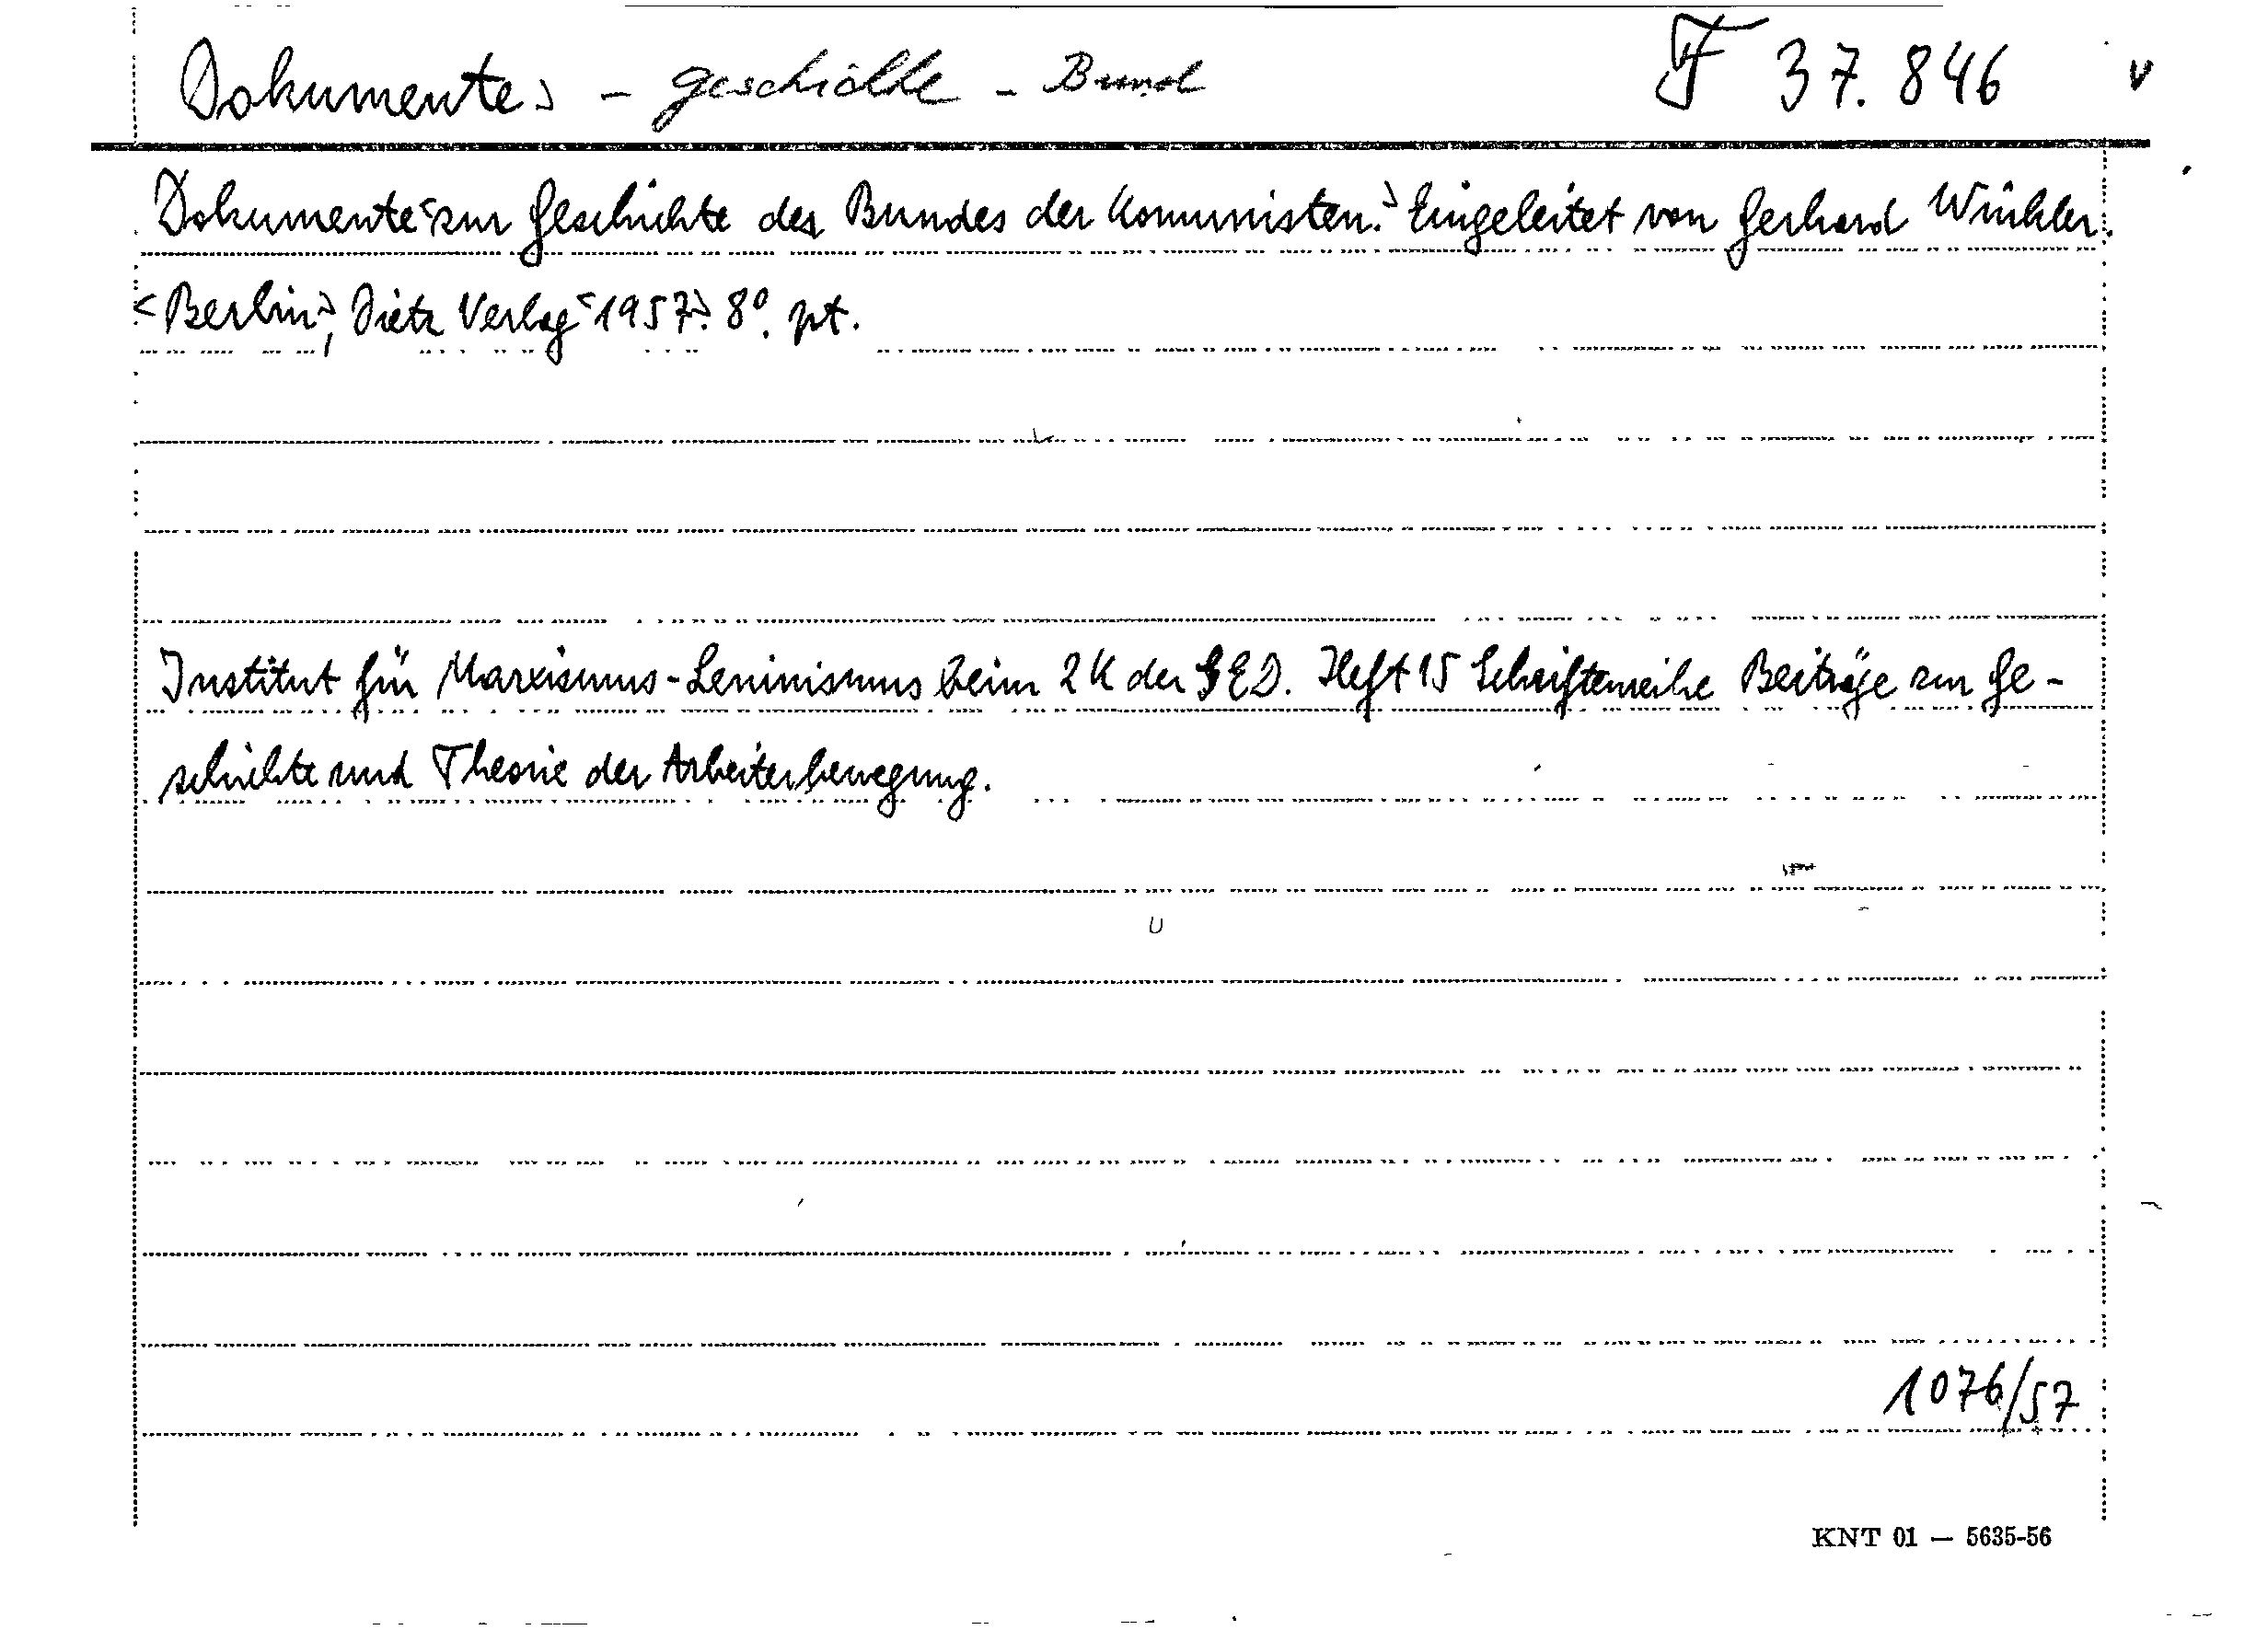 Dokumente> - Geschichte - Bund F 37.846 v
Dokumente <zur Geschichte des Bundes der Komunisten.> Eingeleitet von Gerhard Winkler.
<Berlin>, Dietz Verlag <1957>. 8°. pt.
Institut für Marxismus-Leninismus beim ZK der SED. Heft 15 Schriftenreihe Beiträge zur Ge-
schichte und Theorie der Arbeiterbewegung.
1076/57
KNT 01 — 5635-56